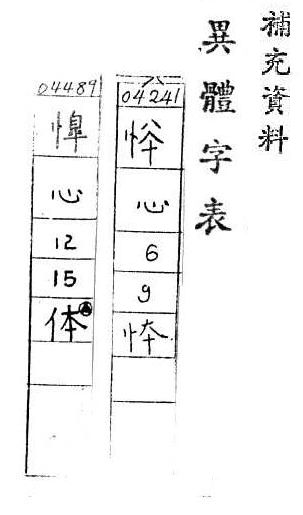 補充資料
異體字表
04241
心
6
9
04489
心
12
15
体